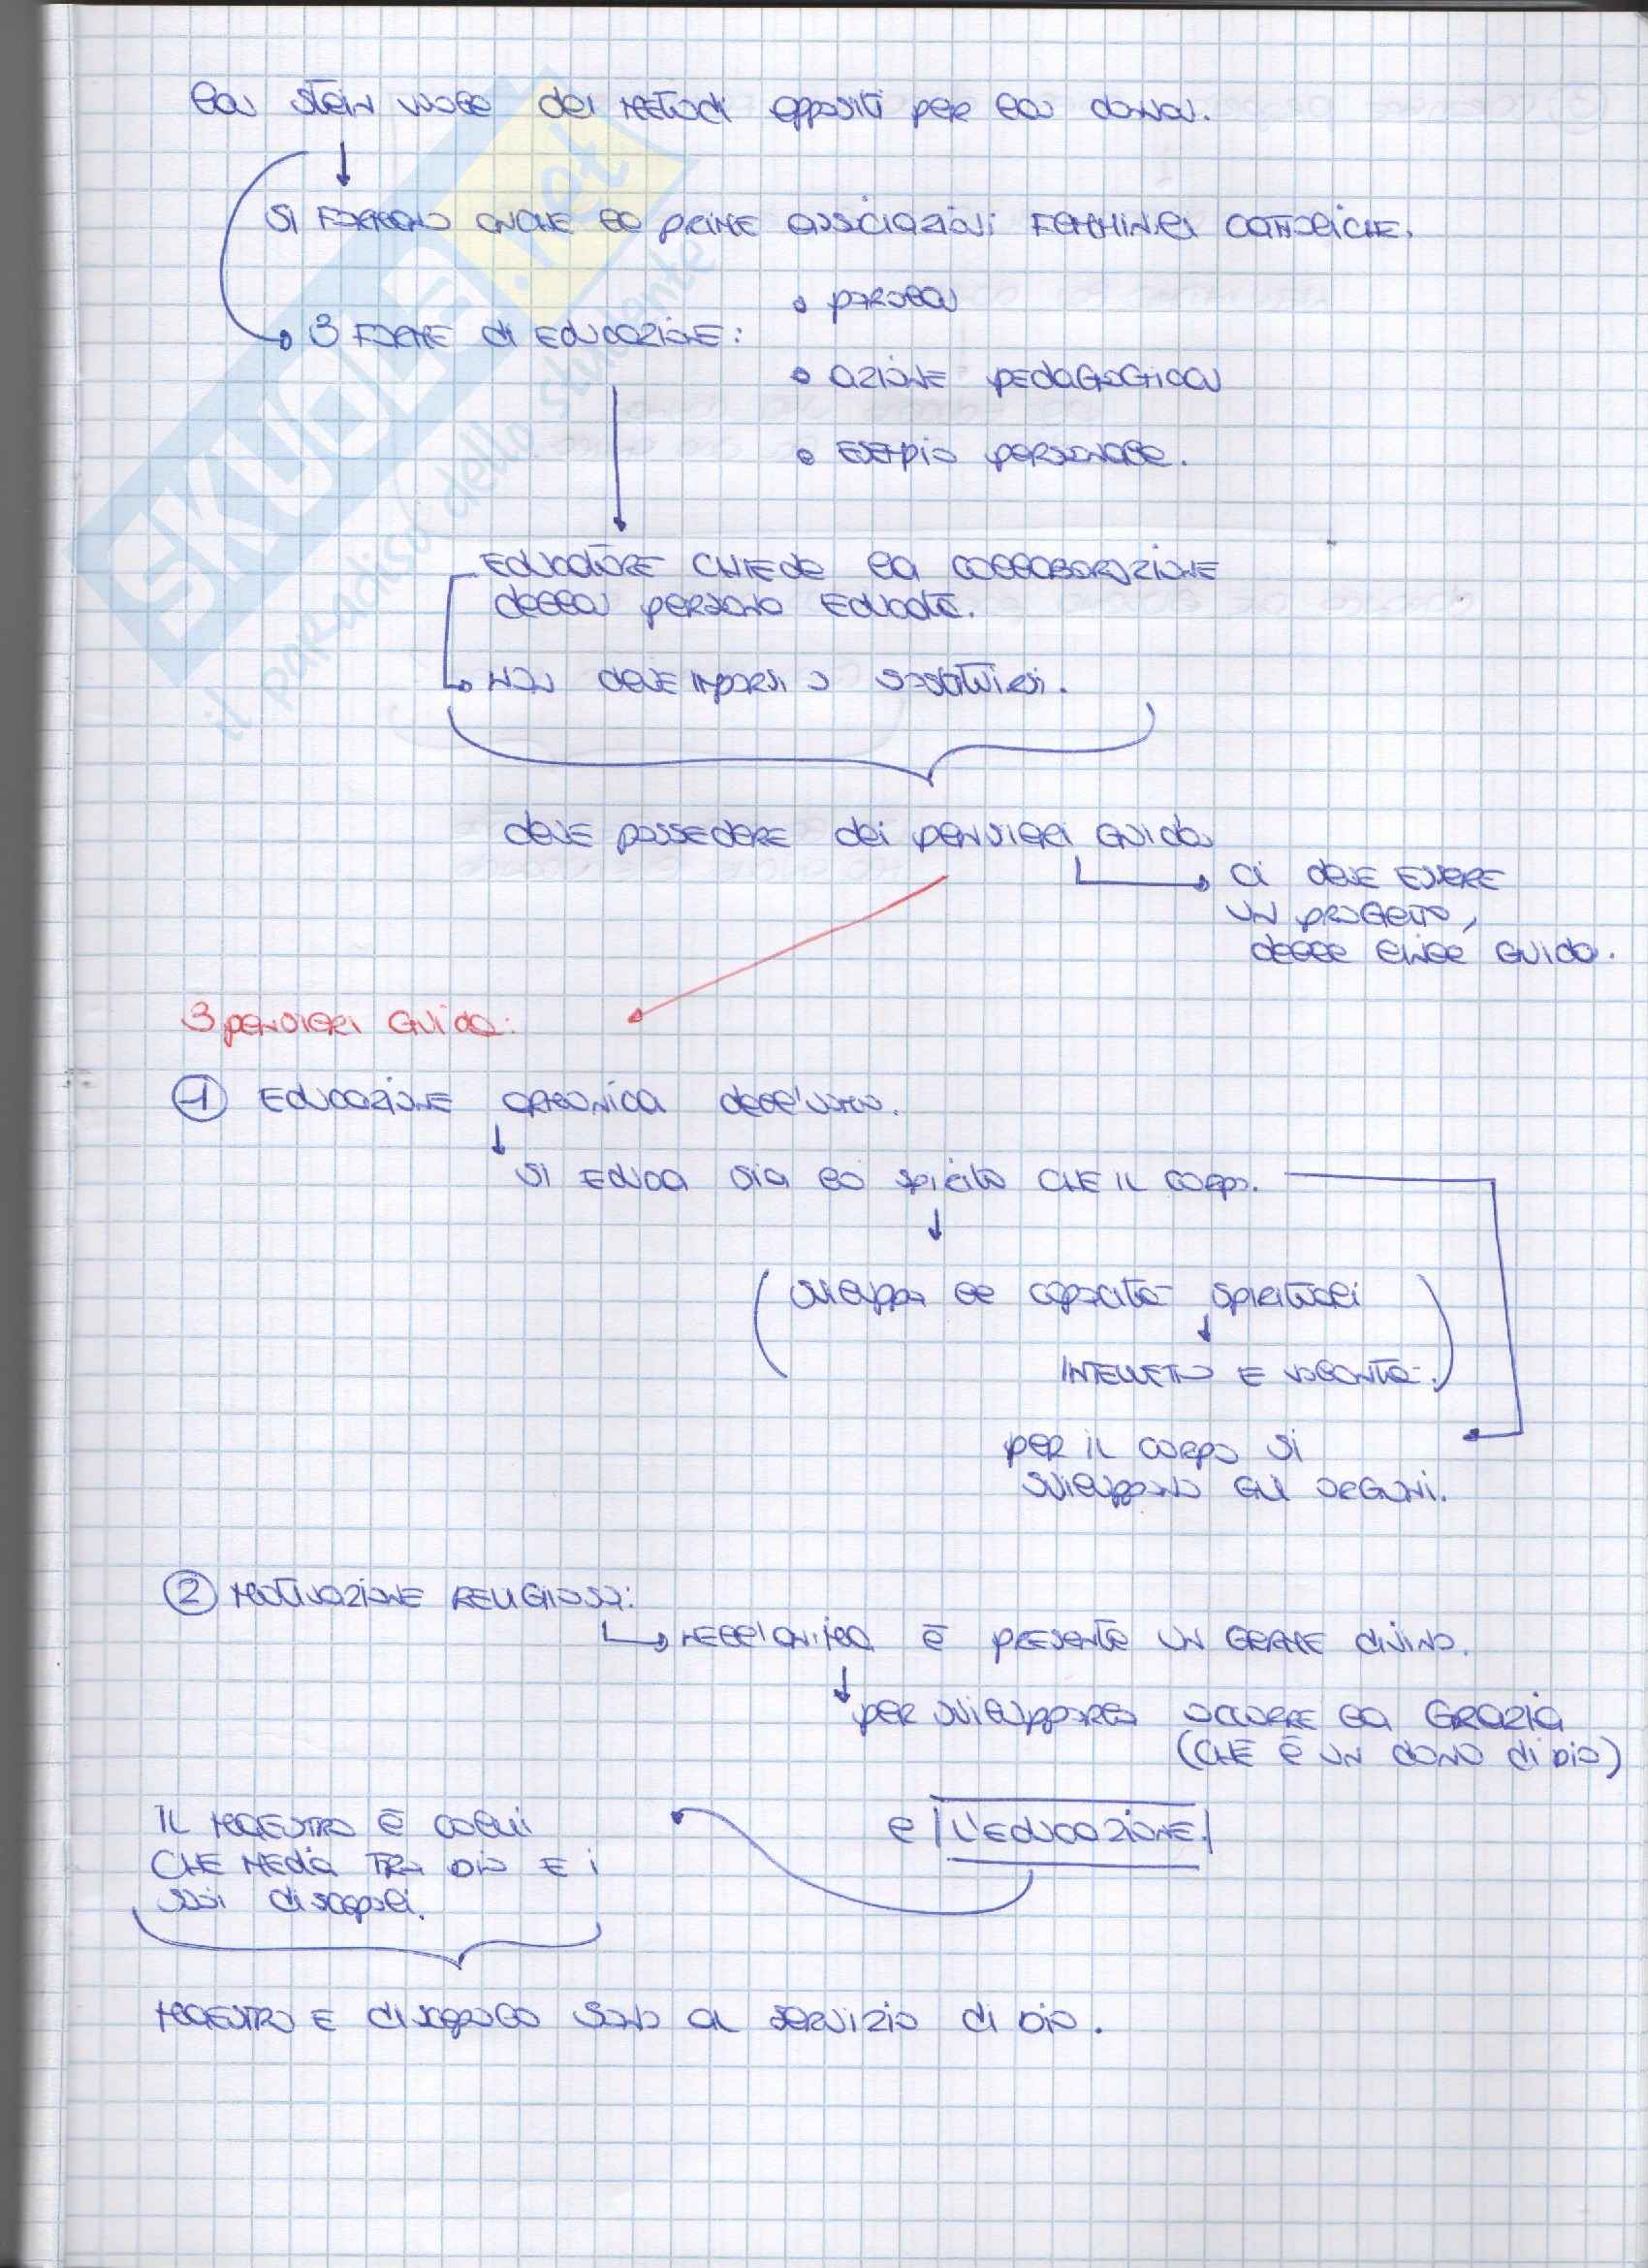 La Stein vuole dei metodi appositi per la donna.
Si formano anche le prime associazioni femminili cattoliche.
3 forme di educazione:
• parola
• azione pedagogica
• esempio personale.
Educatore chiede la collaborazione
della persona educata.
non deve imporsi o sostituirsi.
deve possedere dei pensieri guida
ci deve essere
un progetto,
delle linee guida.
3 pensieri guida:
1 Educazione organica dell'uomo.
si educa sia lo spirito che il corpo.
(sviluppa le capacità spirituali
intelletto e volontà.)
per il corpo si
sviluppano gli organi.
2 Motivazione religiosa:
nell'anima è presente un germe divino.
per svilupparsi occorre la Grazia
(che è un dono di Dio)
e l'educazione.
Il maestro è colui
che media tra Dio e i
suoi discepoli.
Maestro e discepolo sono al servizio di Dio.
SKUOLA.net
il paradiso dello studente